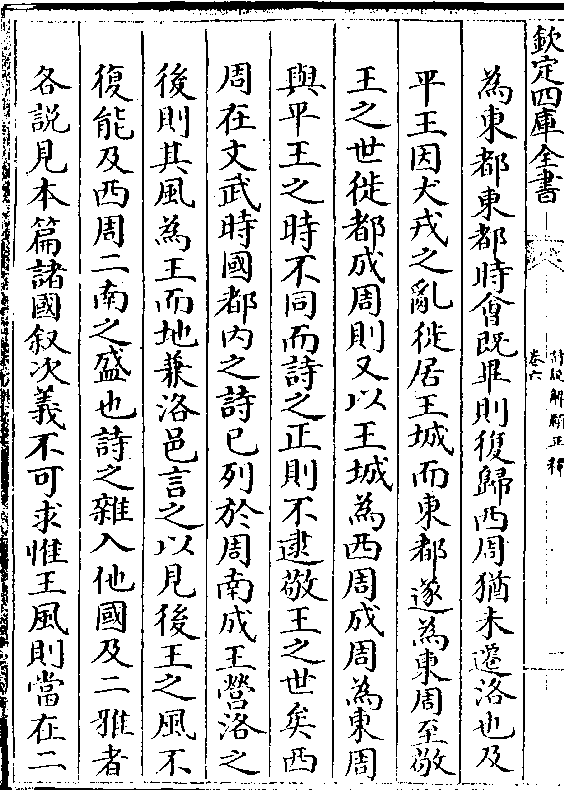 欽定四庫全書
詩說解頤正釋
卷六
為東都東都時會既畢則復歸西周猶未遷洛也及
平王因犬戎之亂徙居王城而東都遂為東周至敬
王之世徙都成周則又以王城為西周成周為東周
與平王之時不同而詩之正則不逮敬王之世矣西
周在文武時國都內之詩已列於周南成王營洛之
後則其風為王而地兼洛邑言之以見後王之風不
復能及西周二南之盛也詩之雜入他國及二雅者
各説見本篇諸國叙次義不可求惟王風則當在二